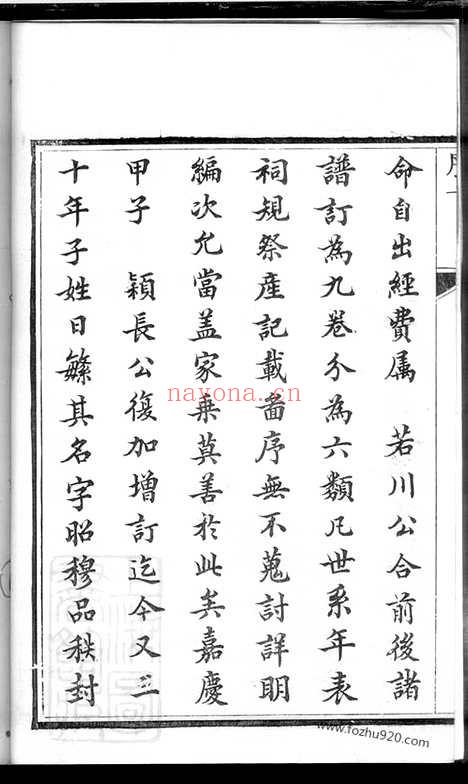 命自出經費属　若川公合前後諸
譜訂為九卷分為六類凡世系年表
祠規祭産記載畵序無不蒐討詳明
編次允當盖家乗莫善於此矣嘉慶
甲子　穎長公復加增訂迄今又三
十年子姓日蘇其名字昭穆品秩封
nayona.cn
www.fozhu920.com